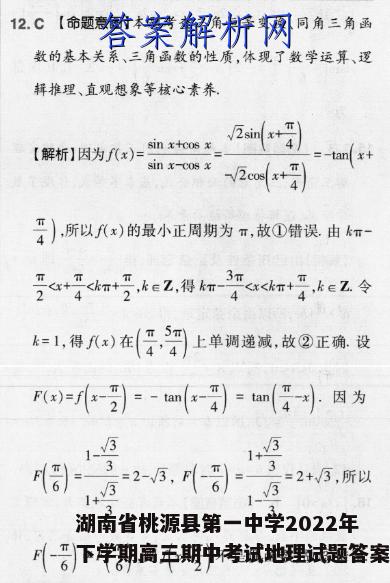 12.C 【命题意图】本题考查三角恒等变换、同角三角函
答案解析网
数的基本关系、三角函数的性质,体现了数学运算、逻
辑推理、直观想象等核心素养.
【解析】因为f(x)=\frac{sin x+cos x}{sin x-cos x}=\frac{√2sin(x+\frac{π}{4})}{-√2cos(x+\frac{π}{4})}=-tan(x+
\frac{π}{4}),所以f(x)的最小正周期为π,故①错误.由kπ-
\frac{π}{2}<x+\frac{π}{4}<kπ+\frac{π}{2},k∈Z,得kπ-\frac{3π}{4}<x<kπ+\frac{π}{4},k∈Z.令
k=1,得f(x)在(\frac{π}{4},\frac{5π}{4})上单调递减,故②正确.设
F(x)=f(x-\frac{π}{2})=-tan(x-\frac{π}{4})=tan(\frac{π}{4}-x).因为
F(\frac{π}{6})=\frac{1-\frac{√3}{3}}{1+\frac{√3}{3}}=2-√3,F(-\frac{π}{6})=\frac{1+\frac{√3}{3}}{1-\frac{√3}{3}}=2+√3,所以
湖南省桃源县第一中学2022年
下学期高三期中考试地理试题答案
F(-\frac{π}{6})